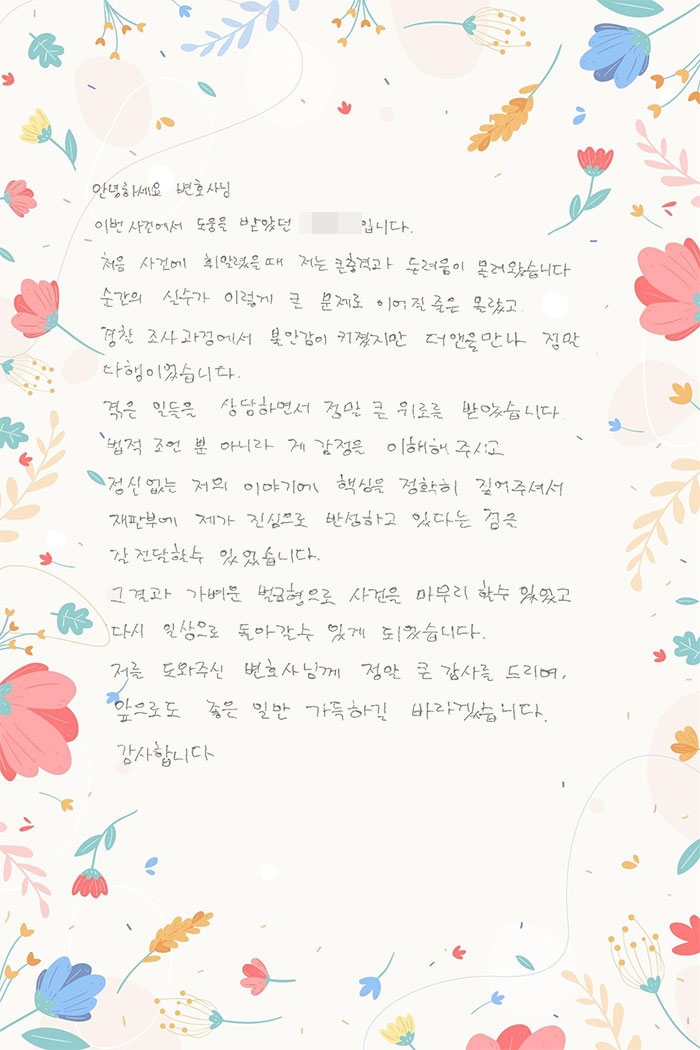 안녕하세요 변호사님
이번 사건에서 도움을 받았던 입니다.
처음 사건에 휘말렸을때 저는 큰충격과 두려움이 몰려왔습니다
순간의 실수가 이렇게 큰 문제로 이어질 줄은 몰랐고
경찰 조사과정에서 불안감이 커졌지만 더앤을만나 정말
다행이었습니다.
겪은 일들을 상담하면서 정말 큰 위로를 받았습니다.
법적 조언 뿐 아니라 제 감정을 이해해 주시고
정신없는 저의 이야기에 핵심을 정확히 짚어주셔서
재판부에 제가 진심으로 반성하고 있다는 점을
잘 전달할수 있었습니다.
그결과 가벼운 벌금형으로 사건을 마무리 할수 있었고
다시 일상으로 돌아갈수 있게 되었습니다.
저를 도와주신 변호사님께 정말 큰 감사를 드리며,
앞으로도 좋은 일만 가득하길 바라겠습니다.
감사합니다